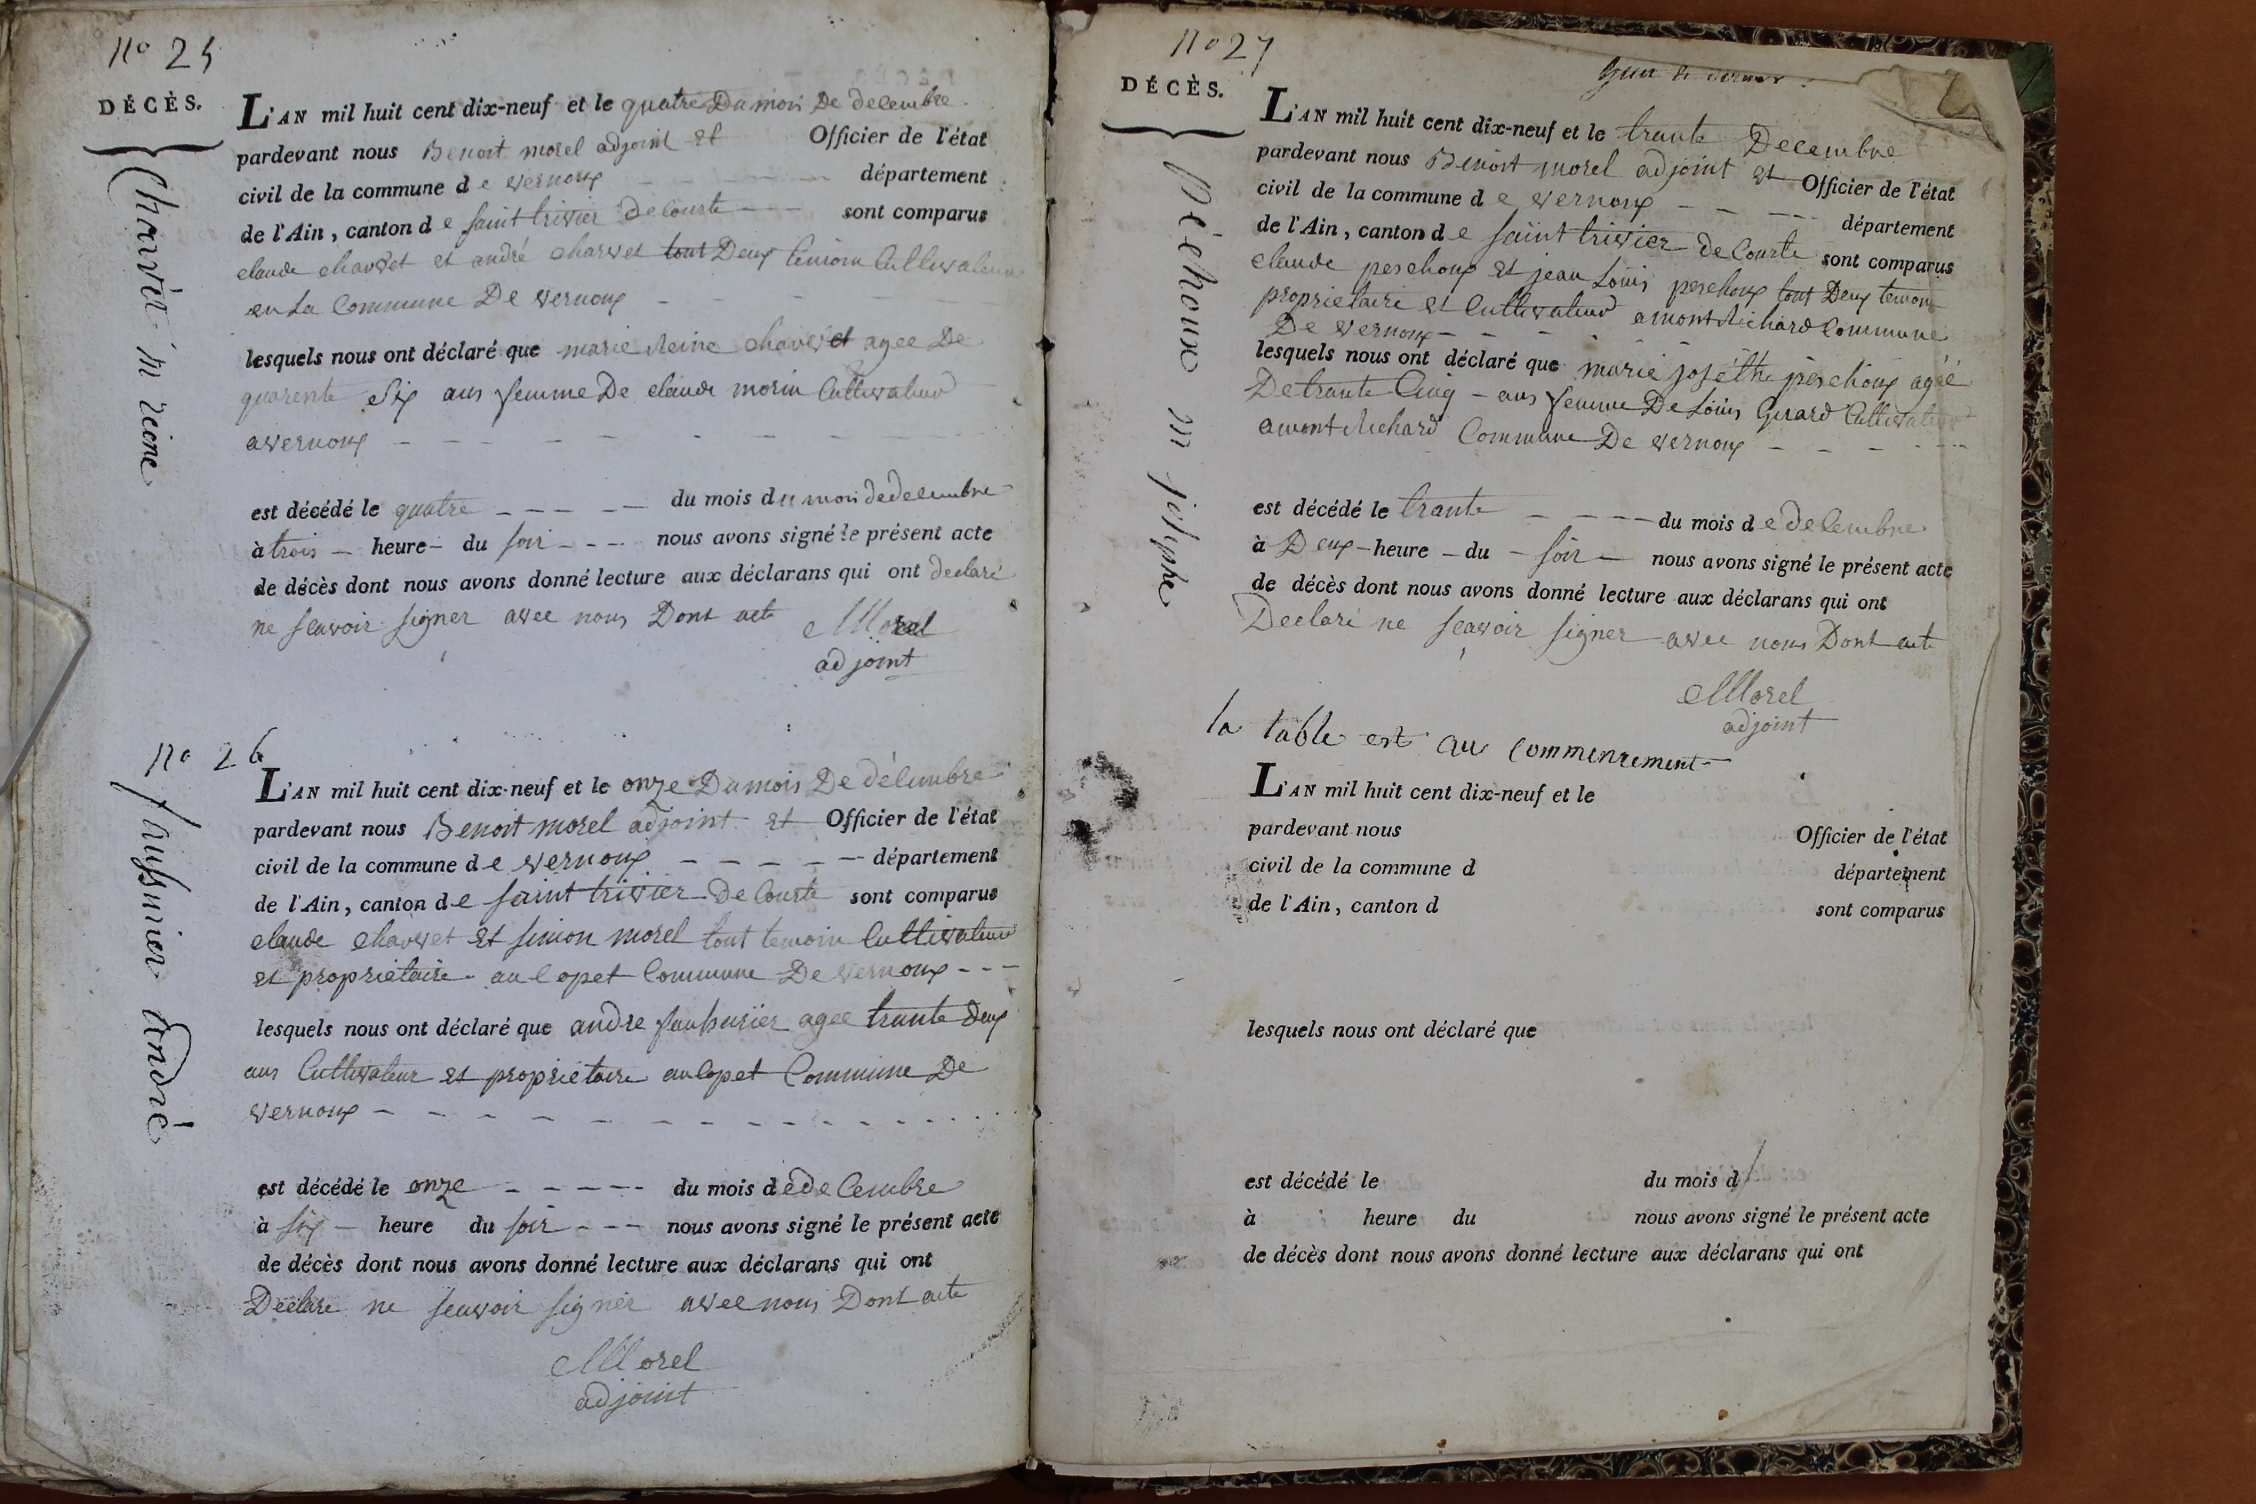 No 25
DÉCÈS.
Charvet m reine
L'AN mil huit cent dix-neuf et le quatre Du mois De decembre
pardevant nous Benoit morel adjoint et Officier de l'état
civil de la commune de vernoux département
de l'Ain, canton de saint trivier De Courte sont comparus
claude charvet et andré charvet tout Deux temoin Cultivateur
en La Commune De vernoux
lesquels nous ont déclaré que marie Reine charvet agee De
quarente Six ans femme De claude morin Cultivateur
a vernoux
est décédé le quatre du mois du mois de decembre
à trois heure du soir nous avons signé le présent acte
de décès dont nous avons donné lecture aux déclarans qui ont declaré
ne scavoir signer avec nous Dont acte Morel
adjoint
No 26
faussurier André
L'AN mil huit cent dix-neuf et le onze Du mois De décembre
pardevant nous Benoit morel adjoint et Officier de l'état
civil de la commune de vernoux département
de l'Ain, canton de saint trivier De Courte sont comparus
claude charvet et simon morel tout temoin Cultivateur
et proprietaire au Copet Commune De vernoux
lesquels nous ont déclaré que andre faussurier agee trante deux
ans Cultivateur et proprietaire au Copet Commune De
vernoux
est décédé le onze du mois de deCembre
à six heure du soir nous avons signé le présent acte
de décès dont nous avons donné lecture aux déclarans qui ont
Declare ne scavoir signer avec nous Dont acte
Morel
adjoint
No 27
DÉCÈS.
Péchoux m josephe
L'AN mil huit cent dix-neuf et le trante Decembre
pardevant nous Benoit morel adjoint et Officier de l'état
civil de la commune de vernoux département
de l'Ain, canton de saint trivier de Courte sont comparus
claude peschoux et jean Louis peschoux tout Deux temoin
proprietaire et Cultivateur a mont Richard Commune
De vernoux
lesquels nous ont déclaré que marie joséthe peschoux agéé
De trante Cinq ans femme De Louis Gerard Cultivateur
a mont Richard Commune De vernoux
est décédé le trante du mois de deCembre
à Deux heure du soir nous avons signé le présent acte
de décès dont nous avons donné lecture aux déclarans qui ont
Declaré ne scavoir signer avec nous Dont acte
Morel
adjoint
la table est au commencement
L'AN mil huit cent dix-neuf et le
pardevant nous Officier de l'état
civil de la commune d département
de l'Ain, canton d sont comparus
lesquels nous ont déclaré que
est décédé le du mois d
à heure du nous avons signé le présent acte
de décès dont nous avons donné lecture aux déclarans qui ont